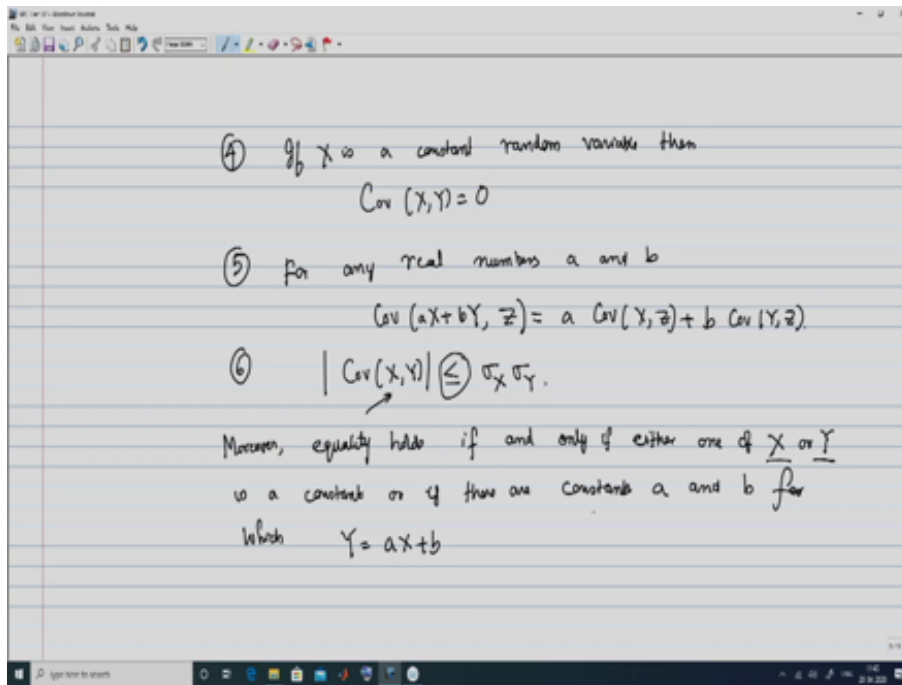 ④ If X is a constant random variable then
Cov (X,Y) = 0
⑤ For any real numbers a and b
Cov (aX+bY, Z) = a Cov(X,Z) + b Cov(Y,Z).
⑥ |Cov(X,Y)| ≤ σ_X σ_Y.
Moreover, equality holds if and only if either one of X or Y
is a constant or if there are constants a and b for
which Y = aX+b
Type here to search